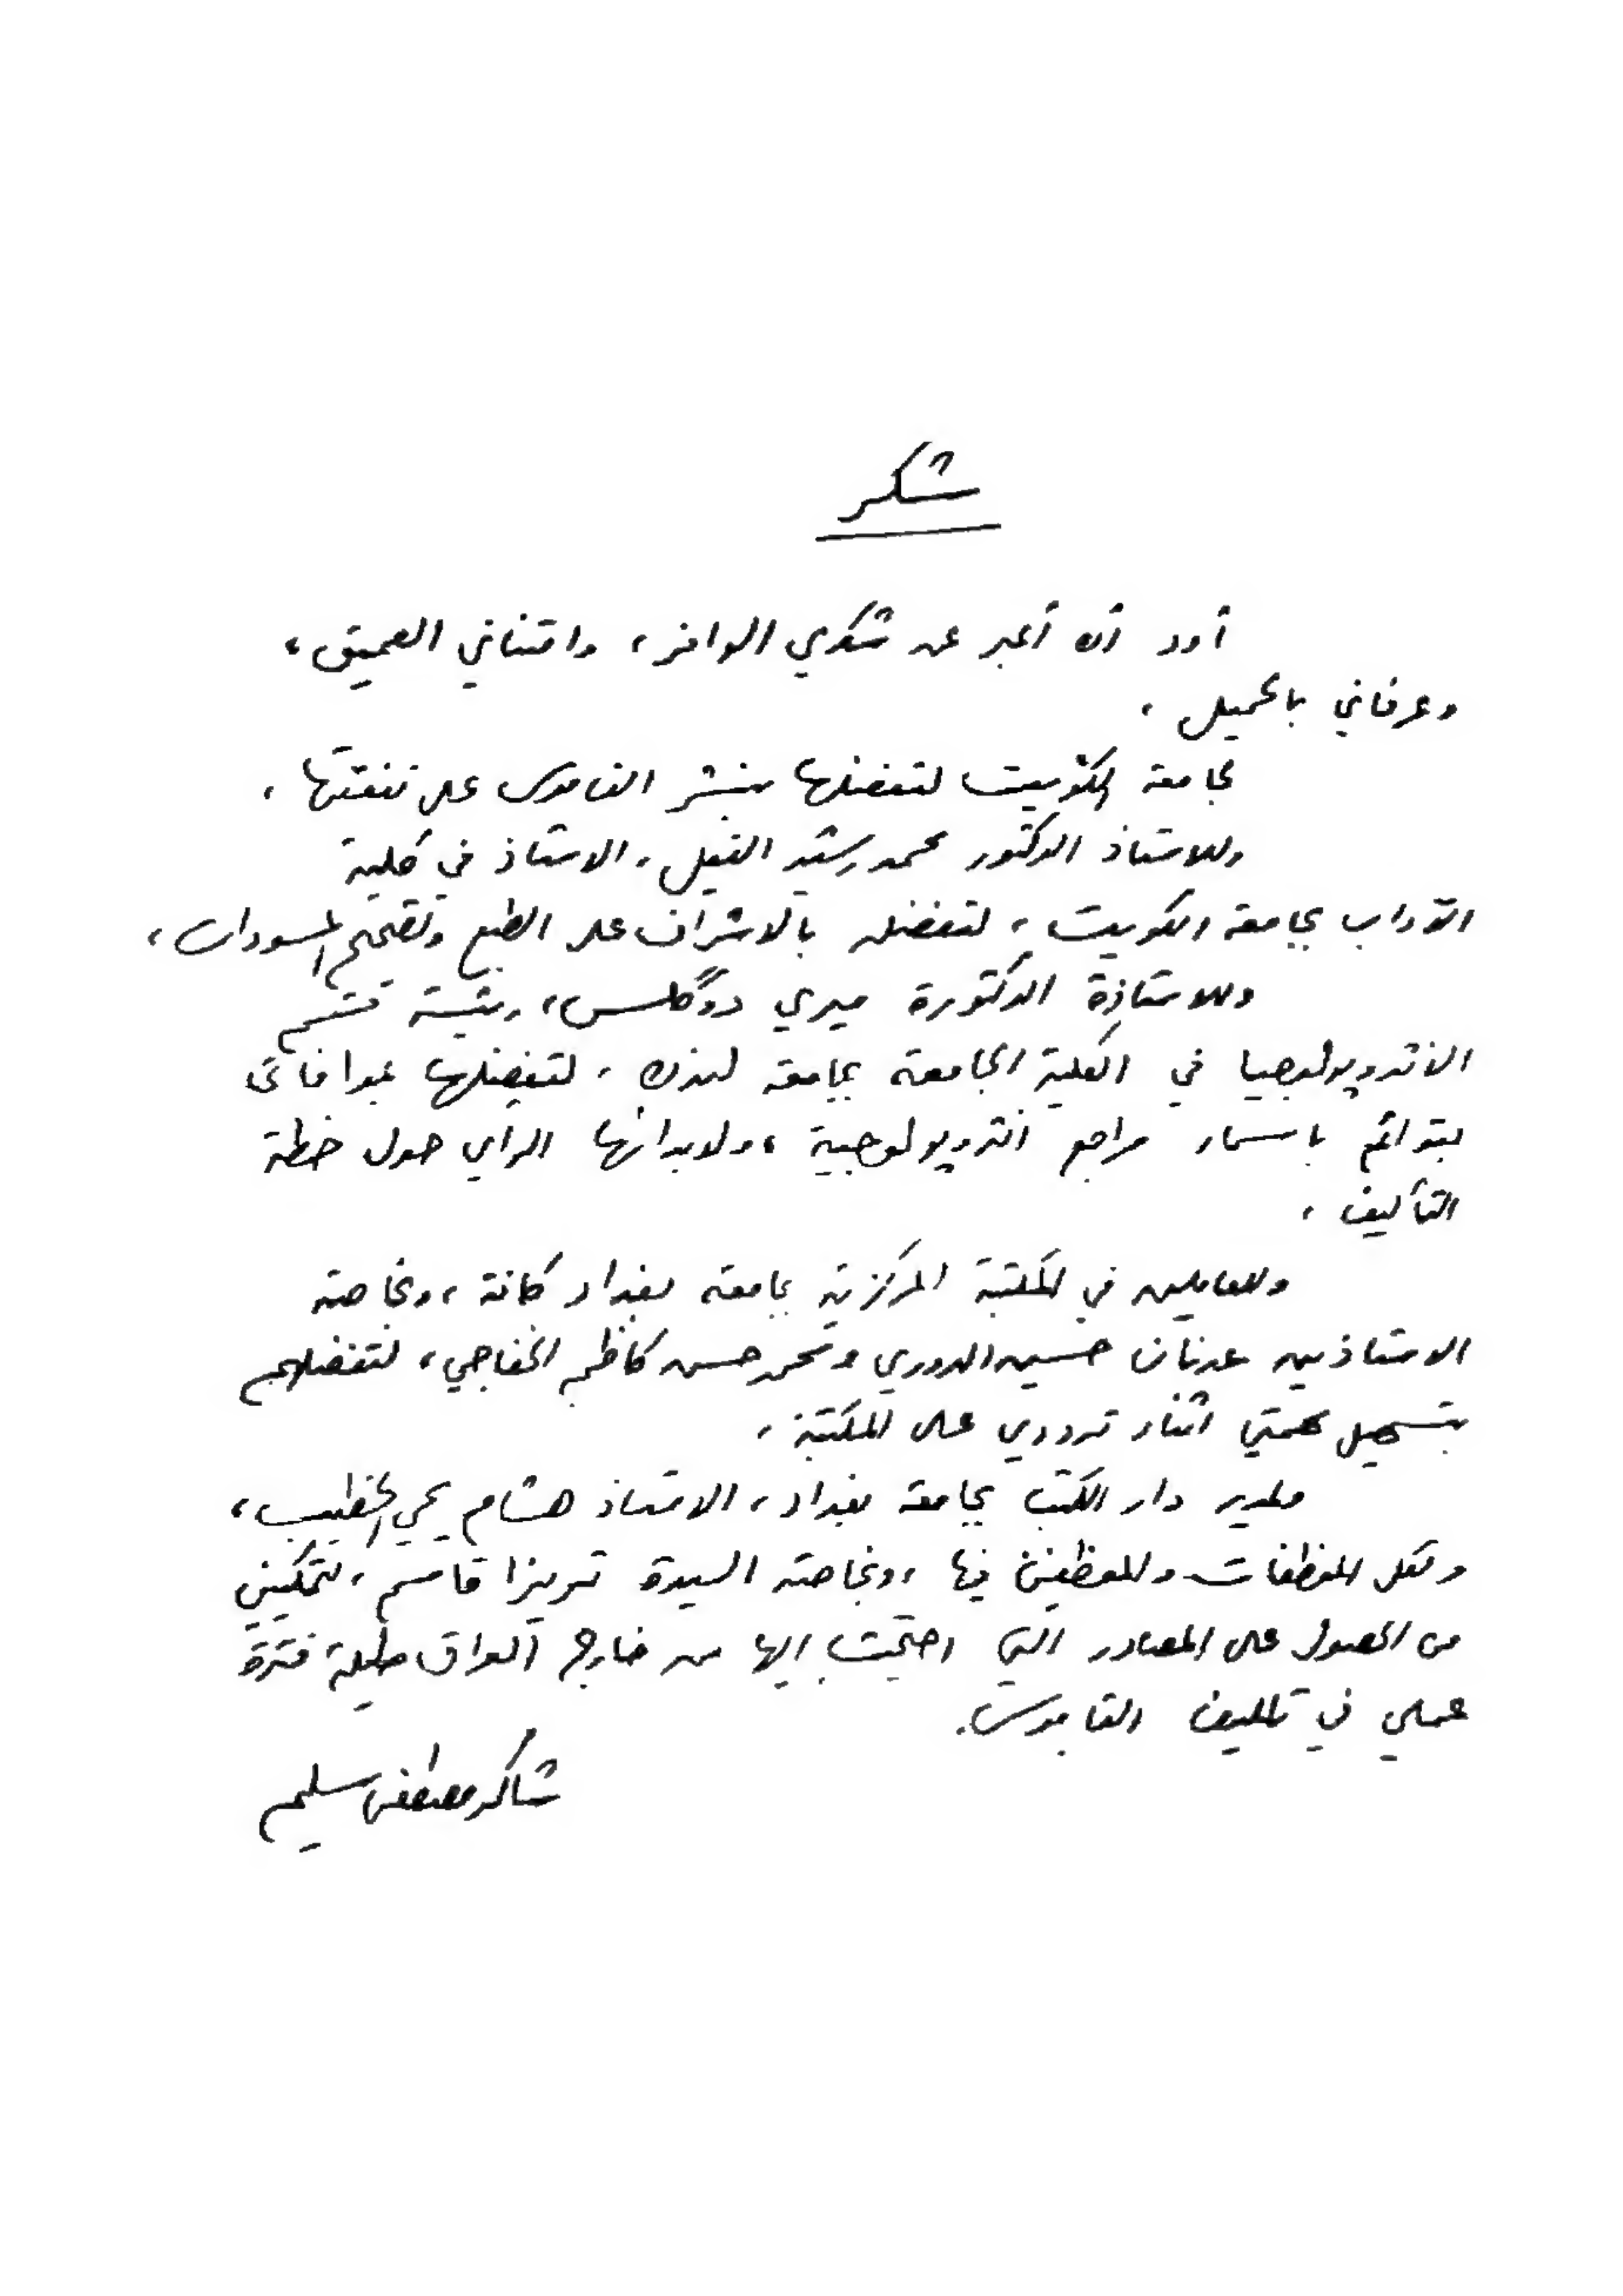 شكر
أود أن أعبر عن شكري الوافر، وامتناني العميق،
وعرفاني بالجميل،
لجامعة الكويت لتفضلها بنشر القاموس على نفقتها،
وللاستاذ الدكتور محمد رشيد الفيل، الاستاذ في كلية
الآداب بجامعة الكويت، لتفضله بالاشراف على الطبع وتصحيح المسودات،
وللاستاذة الدكتورة ميري دوگلس، رئيسة قسم
الانثروپولوجيا في الكلية الجامعة بجامعة لندن، لتفضلها بموافاتي
بقوائم باسماء مراجع انثروپولوجية، ولابدائها الراي حول خطة
التأليف،
وللعاملين في المكتبة المركزية بجامعة بغداد كافة، وبخاصة
الاستاذين عدنان حسين الدوري ومحمد حسن كاظم الخفاجي، لتفضلهم
بتسهيل مهمتي اثناء ترددي على المكتبة،
ولمدير دار الكتب بجامعة بغداد، الاستاذ هشام يحيى الخطيب،
ولكل الموظفات والموظفين فيها، وبخاصة السيدة تريزا قاسم، لتمكيني
من الحصول على المصادر التي احتجت اليها من خارج العراق طيلة فترة
عملي في تأليف القاموس.
شاكر مصطفى سليم